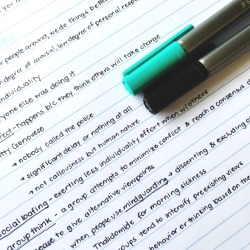 r people around, we do things better
degree of arousal, low degree of personal respon
ndividuality
yone else was doing it
fect - happens b/c they think others will take charge
tty Genovese
→ nobody called the police
→ significant delay or nothing at all
→ not callousness but human nature
social loafing - exerting less individual effort when w/ others
group think - a group attempts to minimize conflict & reach a consensus
ease to give alternative viewpoints
when people use mindguarding → dissenting & excluding
Thalidomide for morning sickness
groups tend to intensify preexisting views
behavior or thinking based on